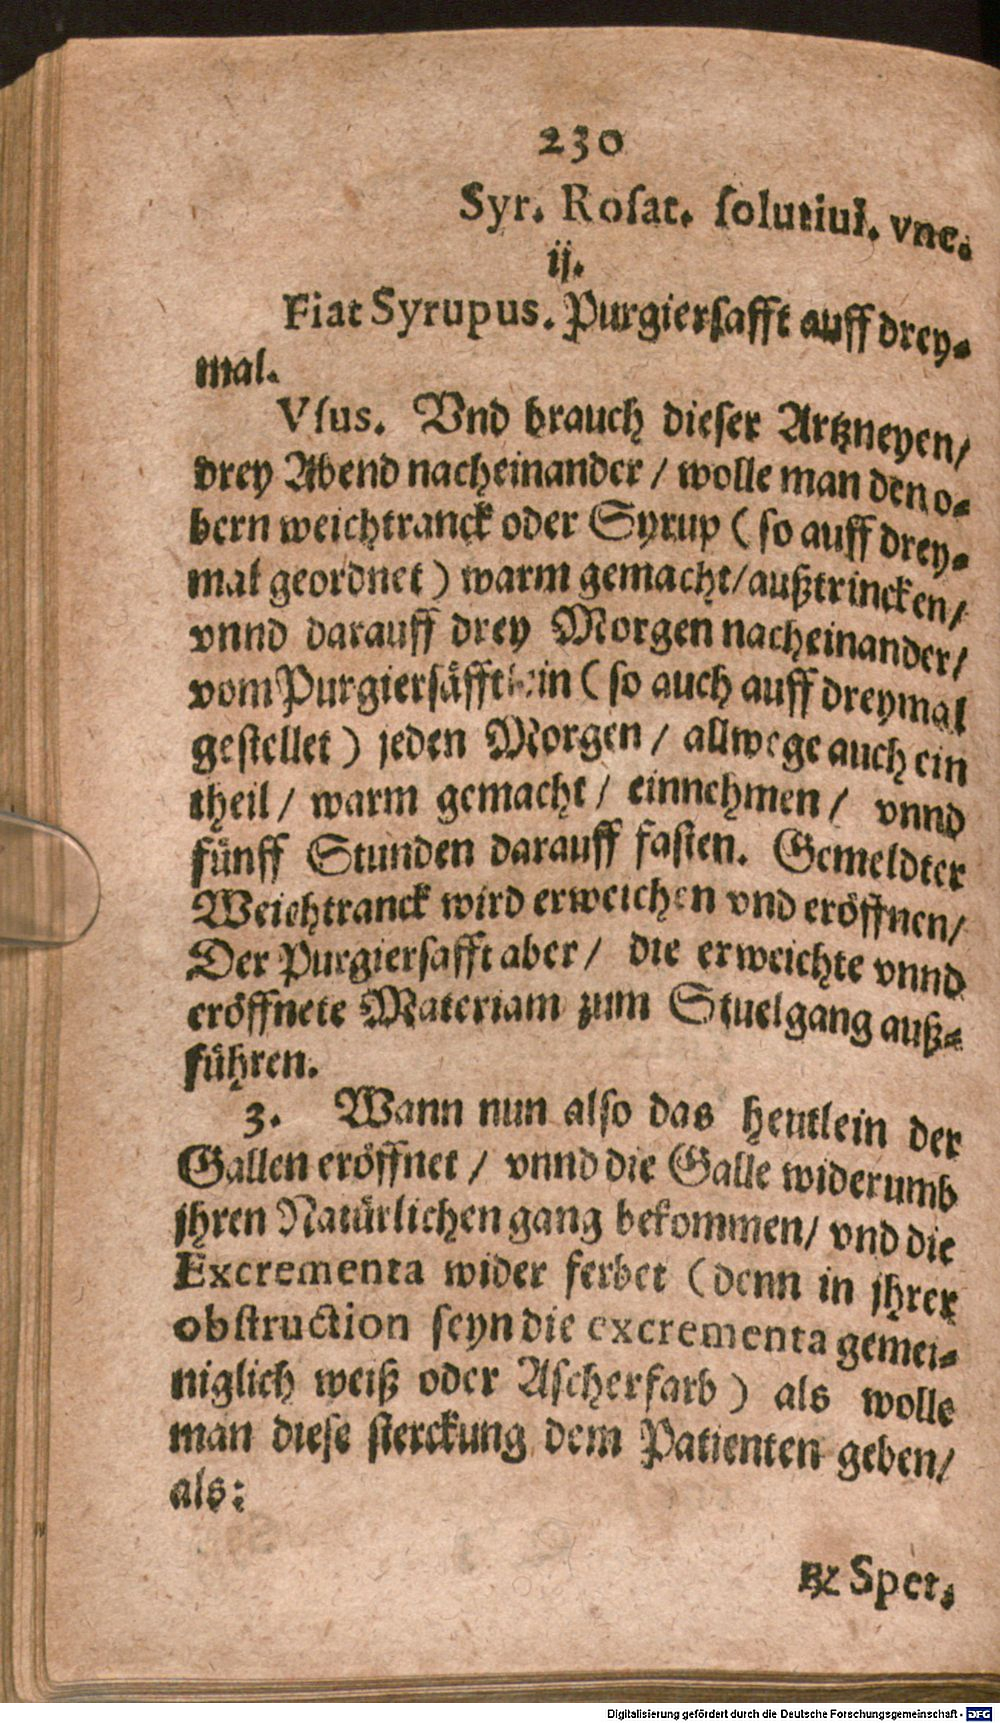 230
Syr. Rosat. solutius. vnc.
ij.
Fiat Syrupus. Purgiersafft auff drey-
mal.
Vsus. Vnd brauch dieser Artzneyen/
drey Abend nacheinander / wolle man den o-
bern weichtranck oder Syrup ( so auff drey-
mal geordnet ) warm gemacht/außtrincken/
vnnd darauff drey Morgen nacheinander/
vom Purgiersäfftlein ( so auch auff dreymal
gestellet ) jeden Morgen / allwege auch ein
theil / warm gemacht / einnehmen / vnnd
fünff Stunden darauff fasten. Gemeldter
Weichtranck wird erweichen vnd eröffnen/
Der Purgiersafft aber / die erweichte vnnd
eröffnete Materiam zum Stuelgang auß-
führen.
3. Wann nun also das heutlein der
Gallen eröffnet / vnnd die Galle widerumb
jhren Natürlichen gang bekommen/ vnd die
Excrementa wider ferbet ( denn in jhrer
obstruction seyn die excrementa gemei-
niglich weiß oder Ascherfarb ) als wolle
man diese sterckung dem Patienten geben/
als:
℞ Spec.
Digitalisierung gefördert durch die Deutsche Forschungsgemeinschaft - DFG